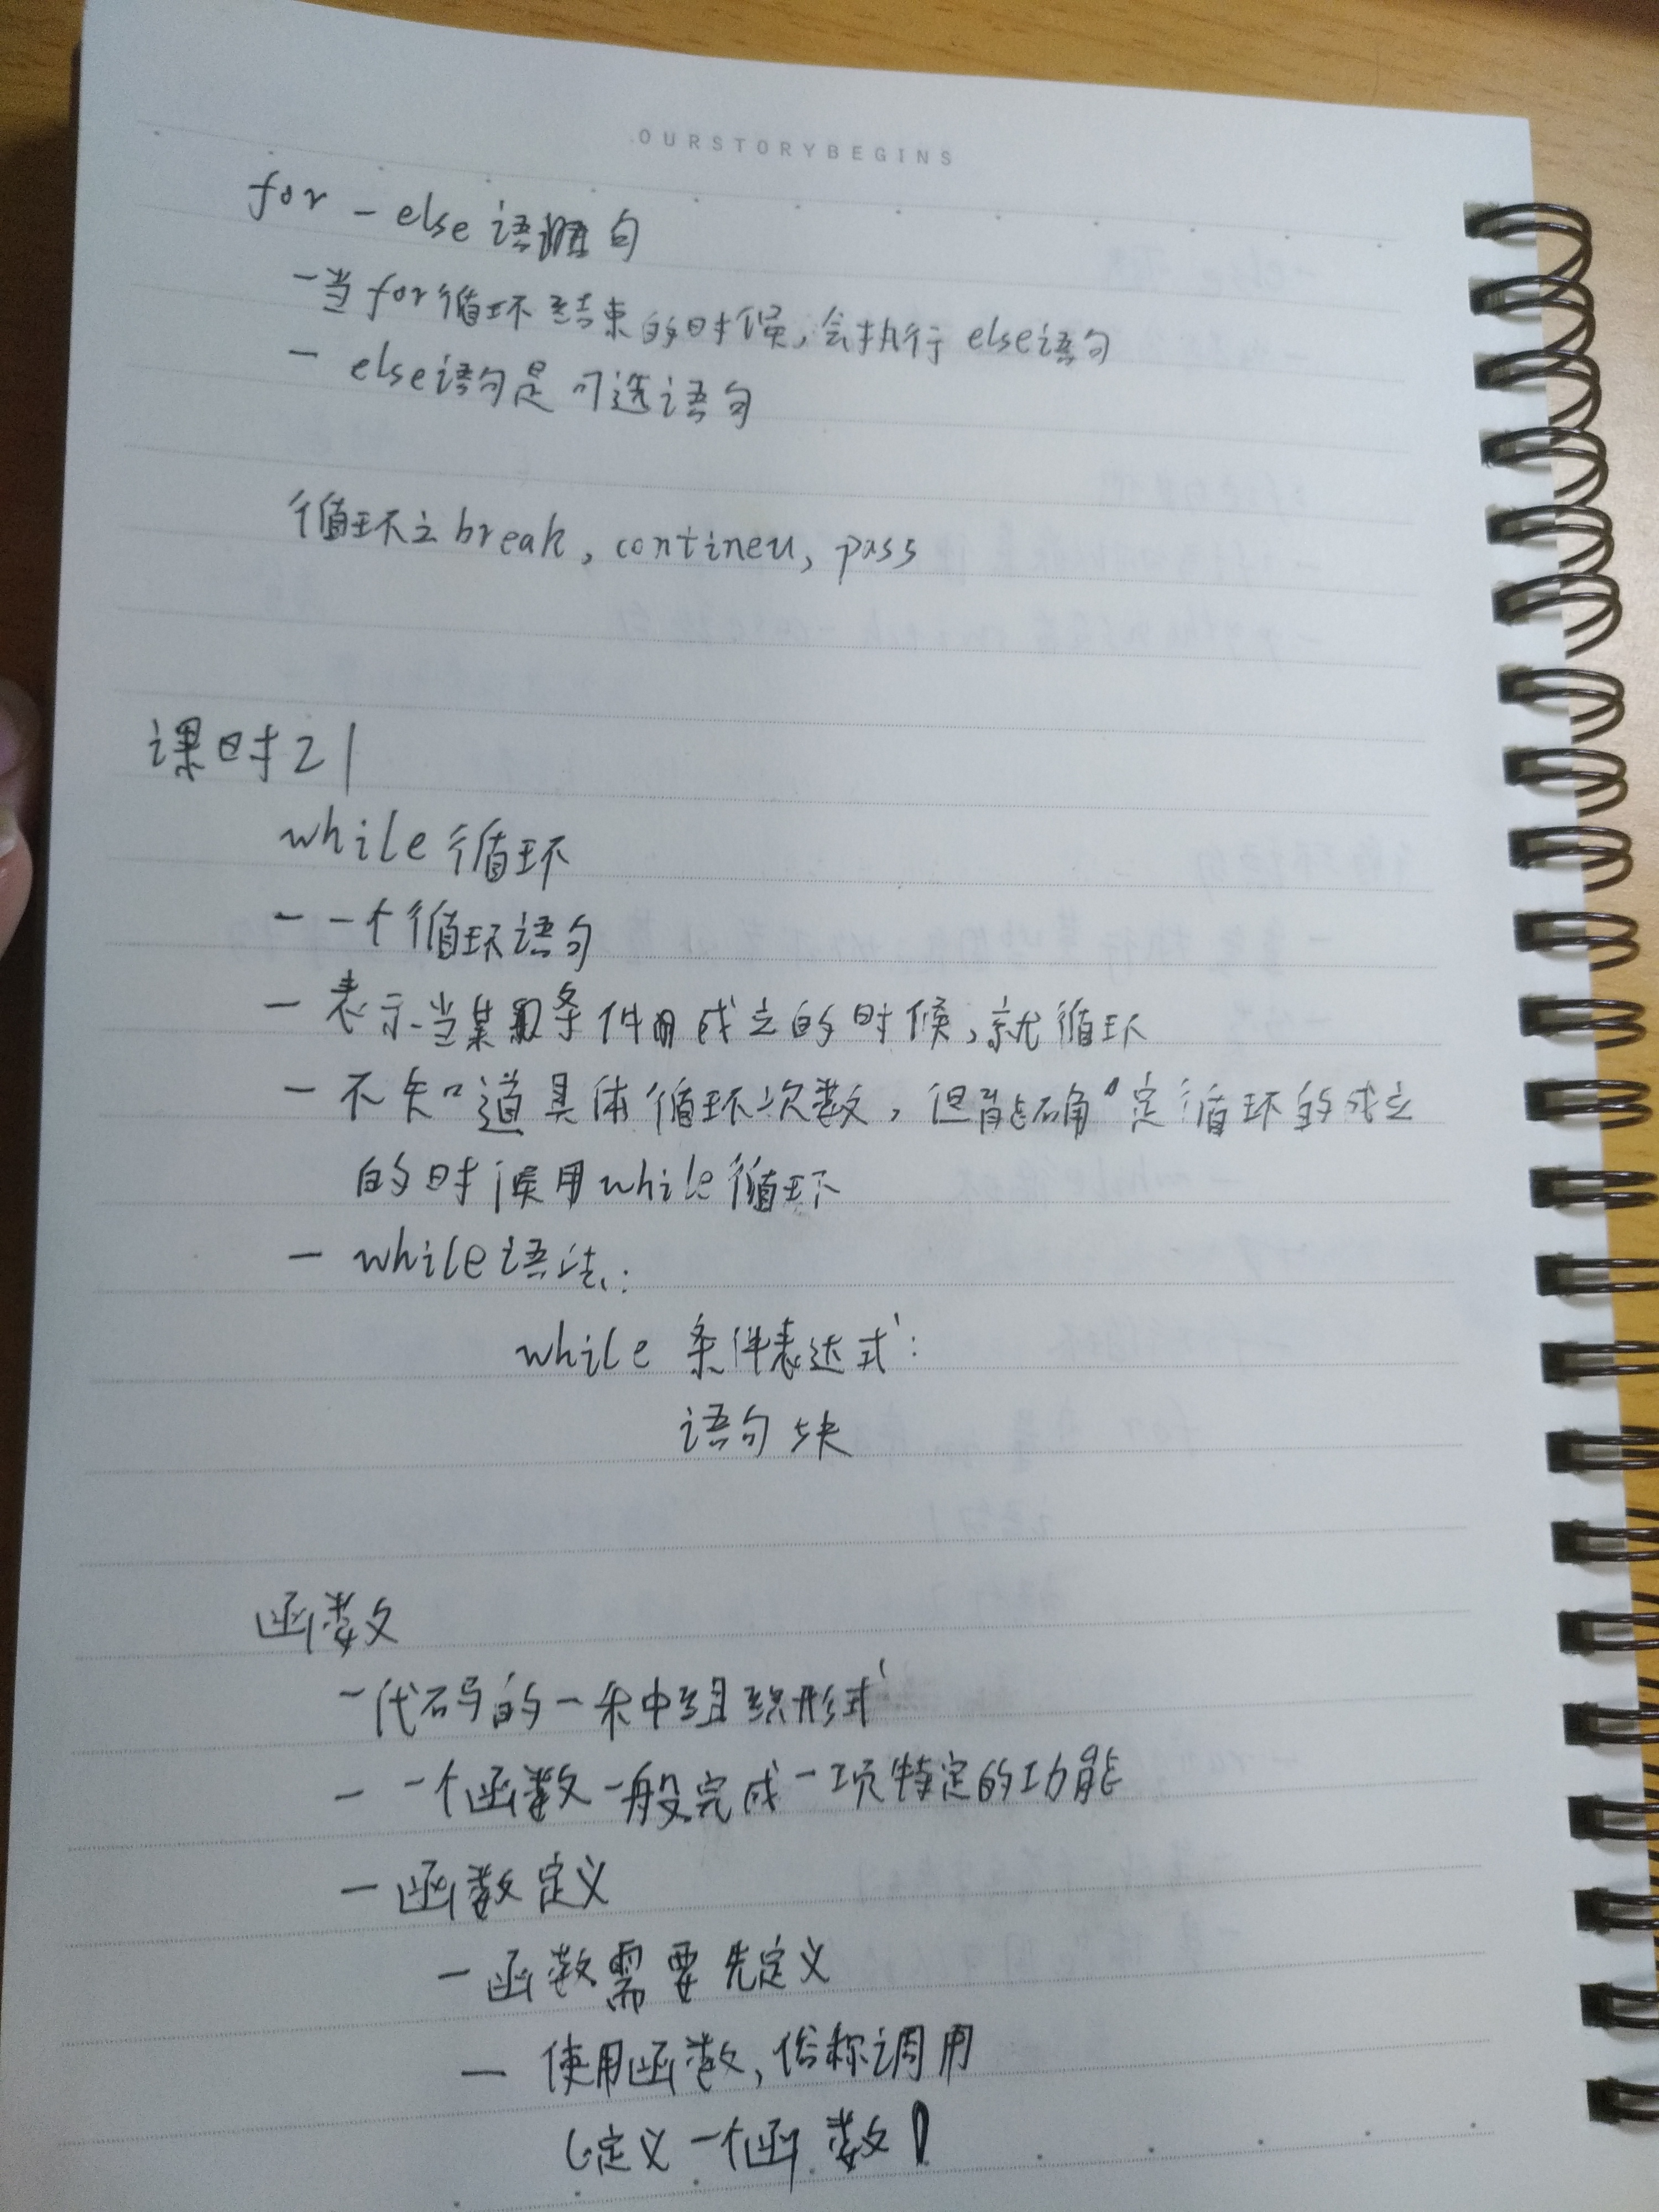 .OURSTORYBEGINS
for - else 语句
- 当for循环结束的时候,会执行else语句
- else语句是可选语句
循环之break, contineu, pass
课时21
while循环
- 一个循环语句
- 表示当某条件成立的时候,就循环
- 不知道具体循环次数,但能确定循环的成立
的时候用while循环
- while语法:
while 条件表达式:
语句块
函数
- 代码的一种组织形式
- 一个函数一般完成一项特定的功能
- 函数定义
- 函数需要先定义
- 使用函数,俗称调用
(定义一个函数)